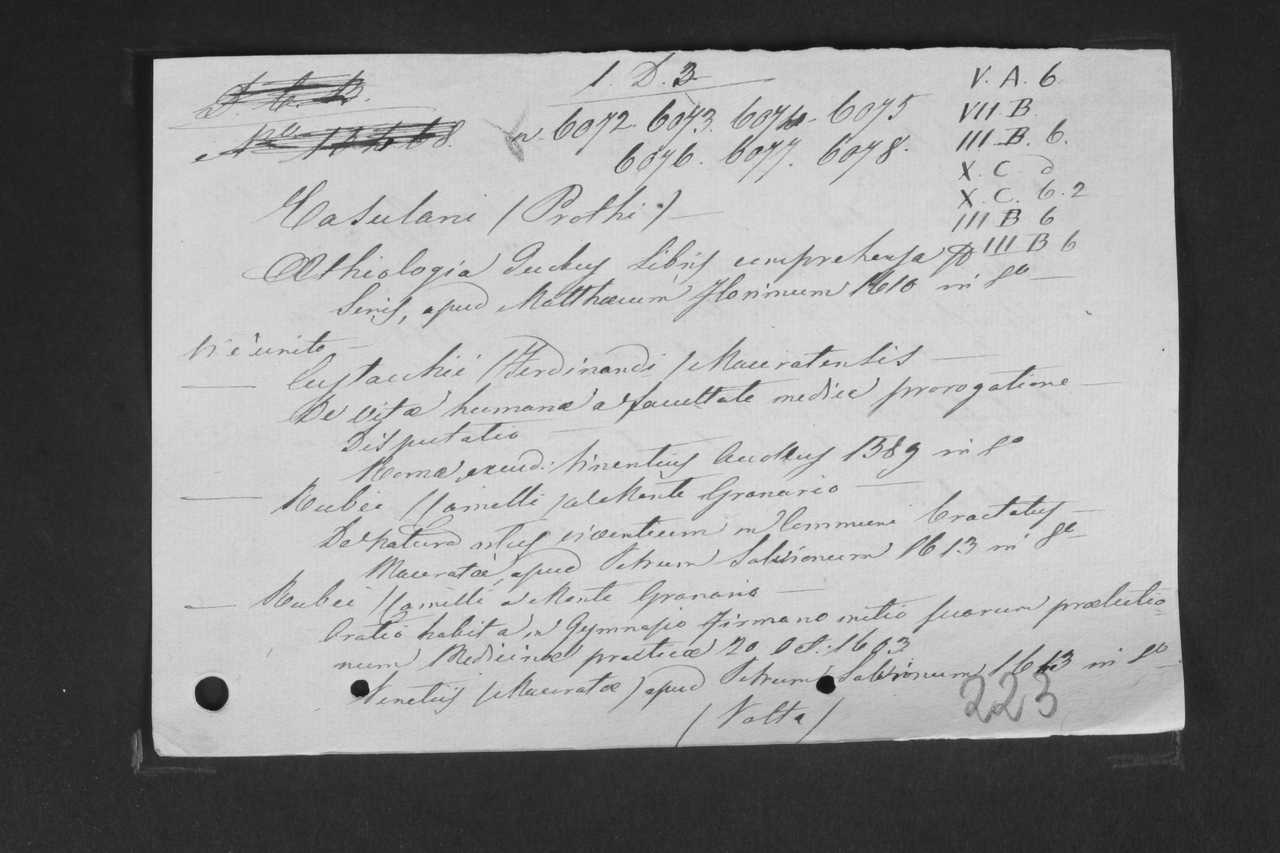 1. D. 3
n. 6072. 6073. 6074. 6075
6076. 6077. 6078.
V. A. 6
VII. B.
III. B. 6.
X. C.
X. C. 6. 2
III B 6
III B 6
Casulani (Prothi)
Æthiologia duobus libris comprehensa
Senis, apud Matthæum Florimum 1610 in 8º
Vi è unito
Eustacchii (Ferdinandi) Maceratensis
De vitæ humanæ a facultate medica prorogatione
Disputatio
Romæ, excud: Vincentius 1589 in 8º
Rubei (Camilli) a Monte Granario
De Natura viventium in Communi Tractatus
Maceratæ, apud Petrum Salvionum 1613 in 8º
Rubei (Camilli a Monte Granario
Oratio habita in Gymnasio Firmano initio suarum prælectio=
num Medicinæ practicæ 20 Oct: 1603
Venetiis (Maceratæ) apud Petrum Salvionum 1613 in 8º
(Volta)
223